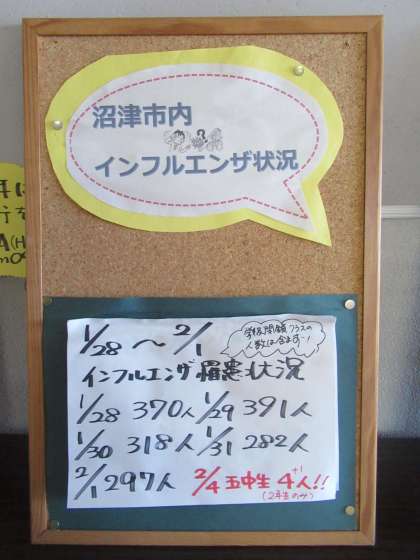 沼津市内
インフルエンザ状況
1/28 ～ 2/1
学級閉鎖クラスの
人数は含まず…!
インフルエンザ罹患状況
1/28 370人 1/29 391人
1/30 318人 1/31 282人
2/1 297人 2/4 五中生 4+1人!!
(2年生のみ)